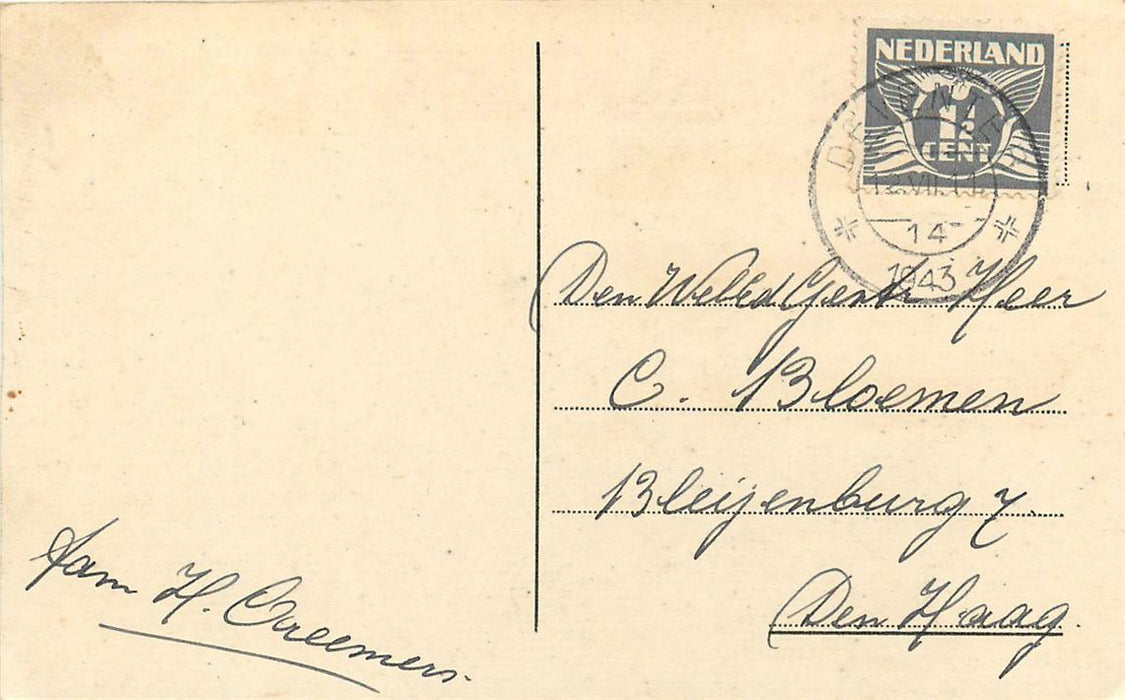 NEDERLAND
1½
CENT
DEVENTER
12.VII.11
14
1943
Den WelEd Gestr Heer
C. Bloemen
Bleijenburg 7.
Den Haag.
Fam H. Creemers.